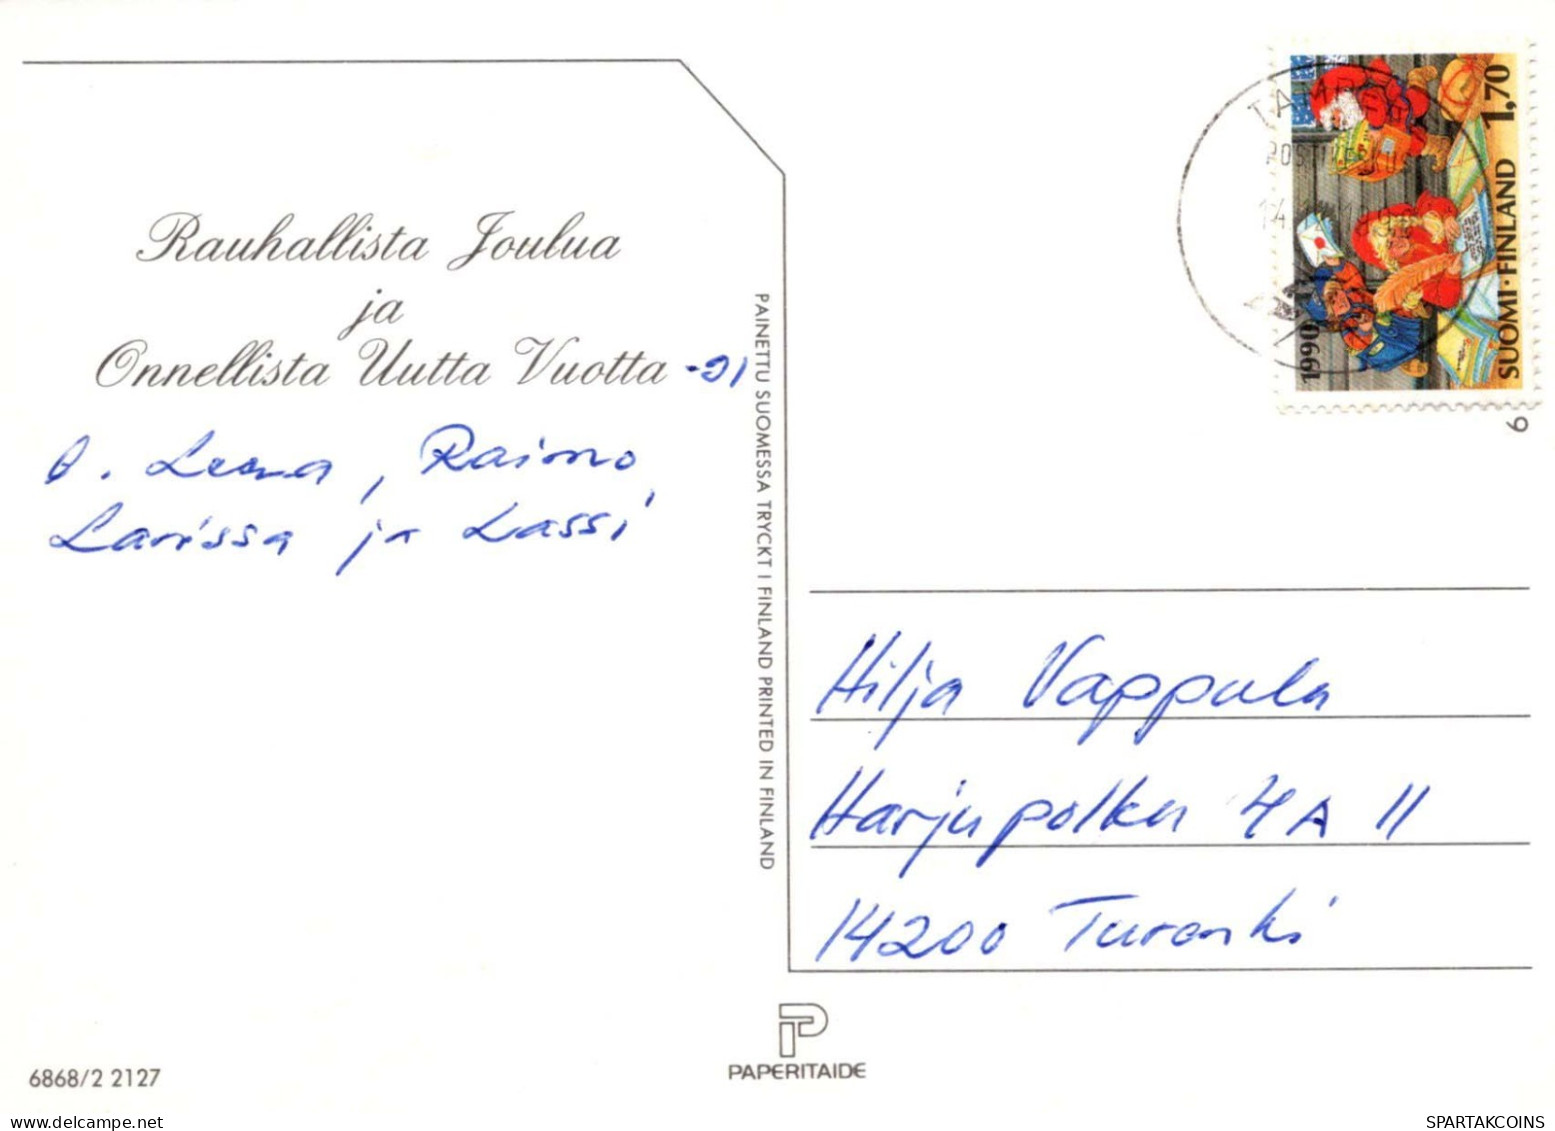 Rauhallista Joulua
ja
Onnellista Uutta Vuotta -91
t. Leena, Raimo,
Larissa ja Lassi
PAINETTU SUOMESSA TRYCKT I FINLAND PRINTED IN FINLAND
1,70
SUOMI·FINLAND
1990
TAMPERE
14
6
Hilja Vappula
Harjupolku 4 A 11
14200 Turenki
PAPERITAIDE
6868/2 2127
SPARTAKCOINS